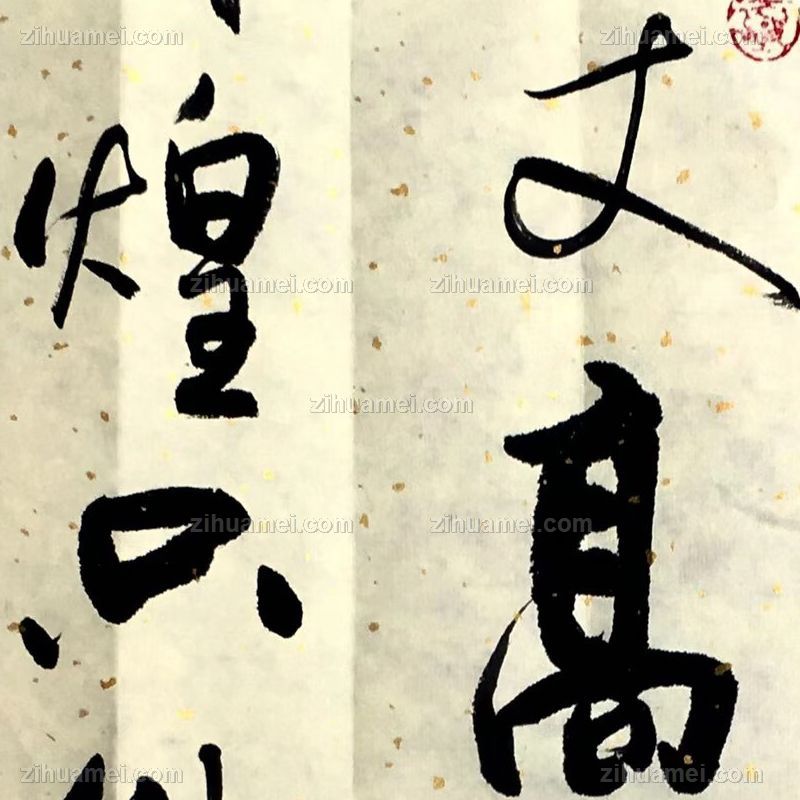 丈高
煌只
zihuamei.com
zihuamei.com
zihuamei.com
zihuamei.com
zihuamei.com
zihuamei.com
zihuamei.com
zihuamei.com
zihuamei.com